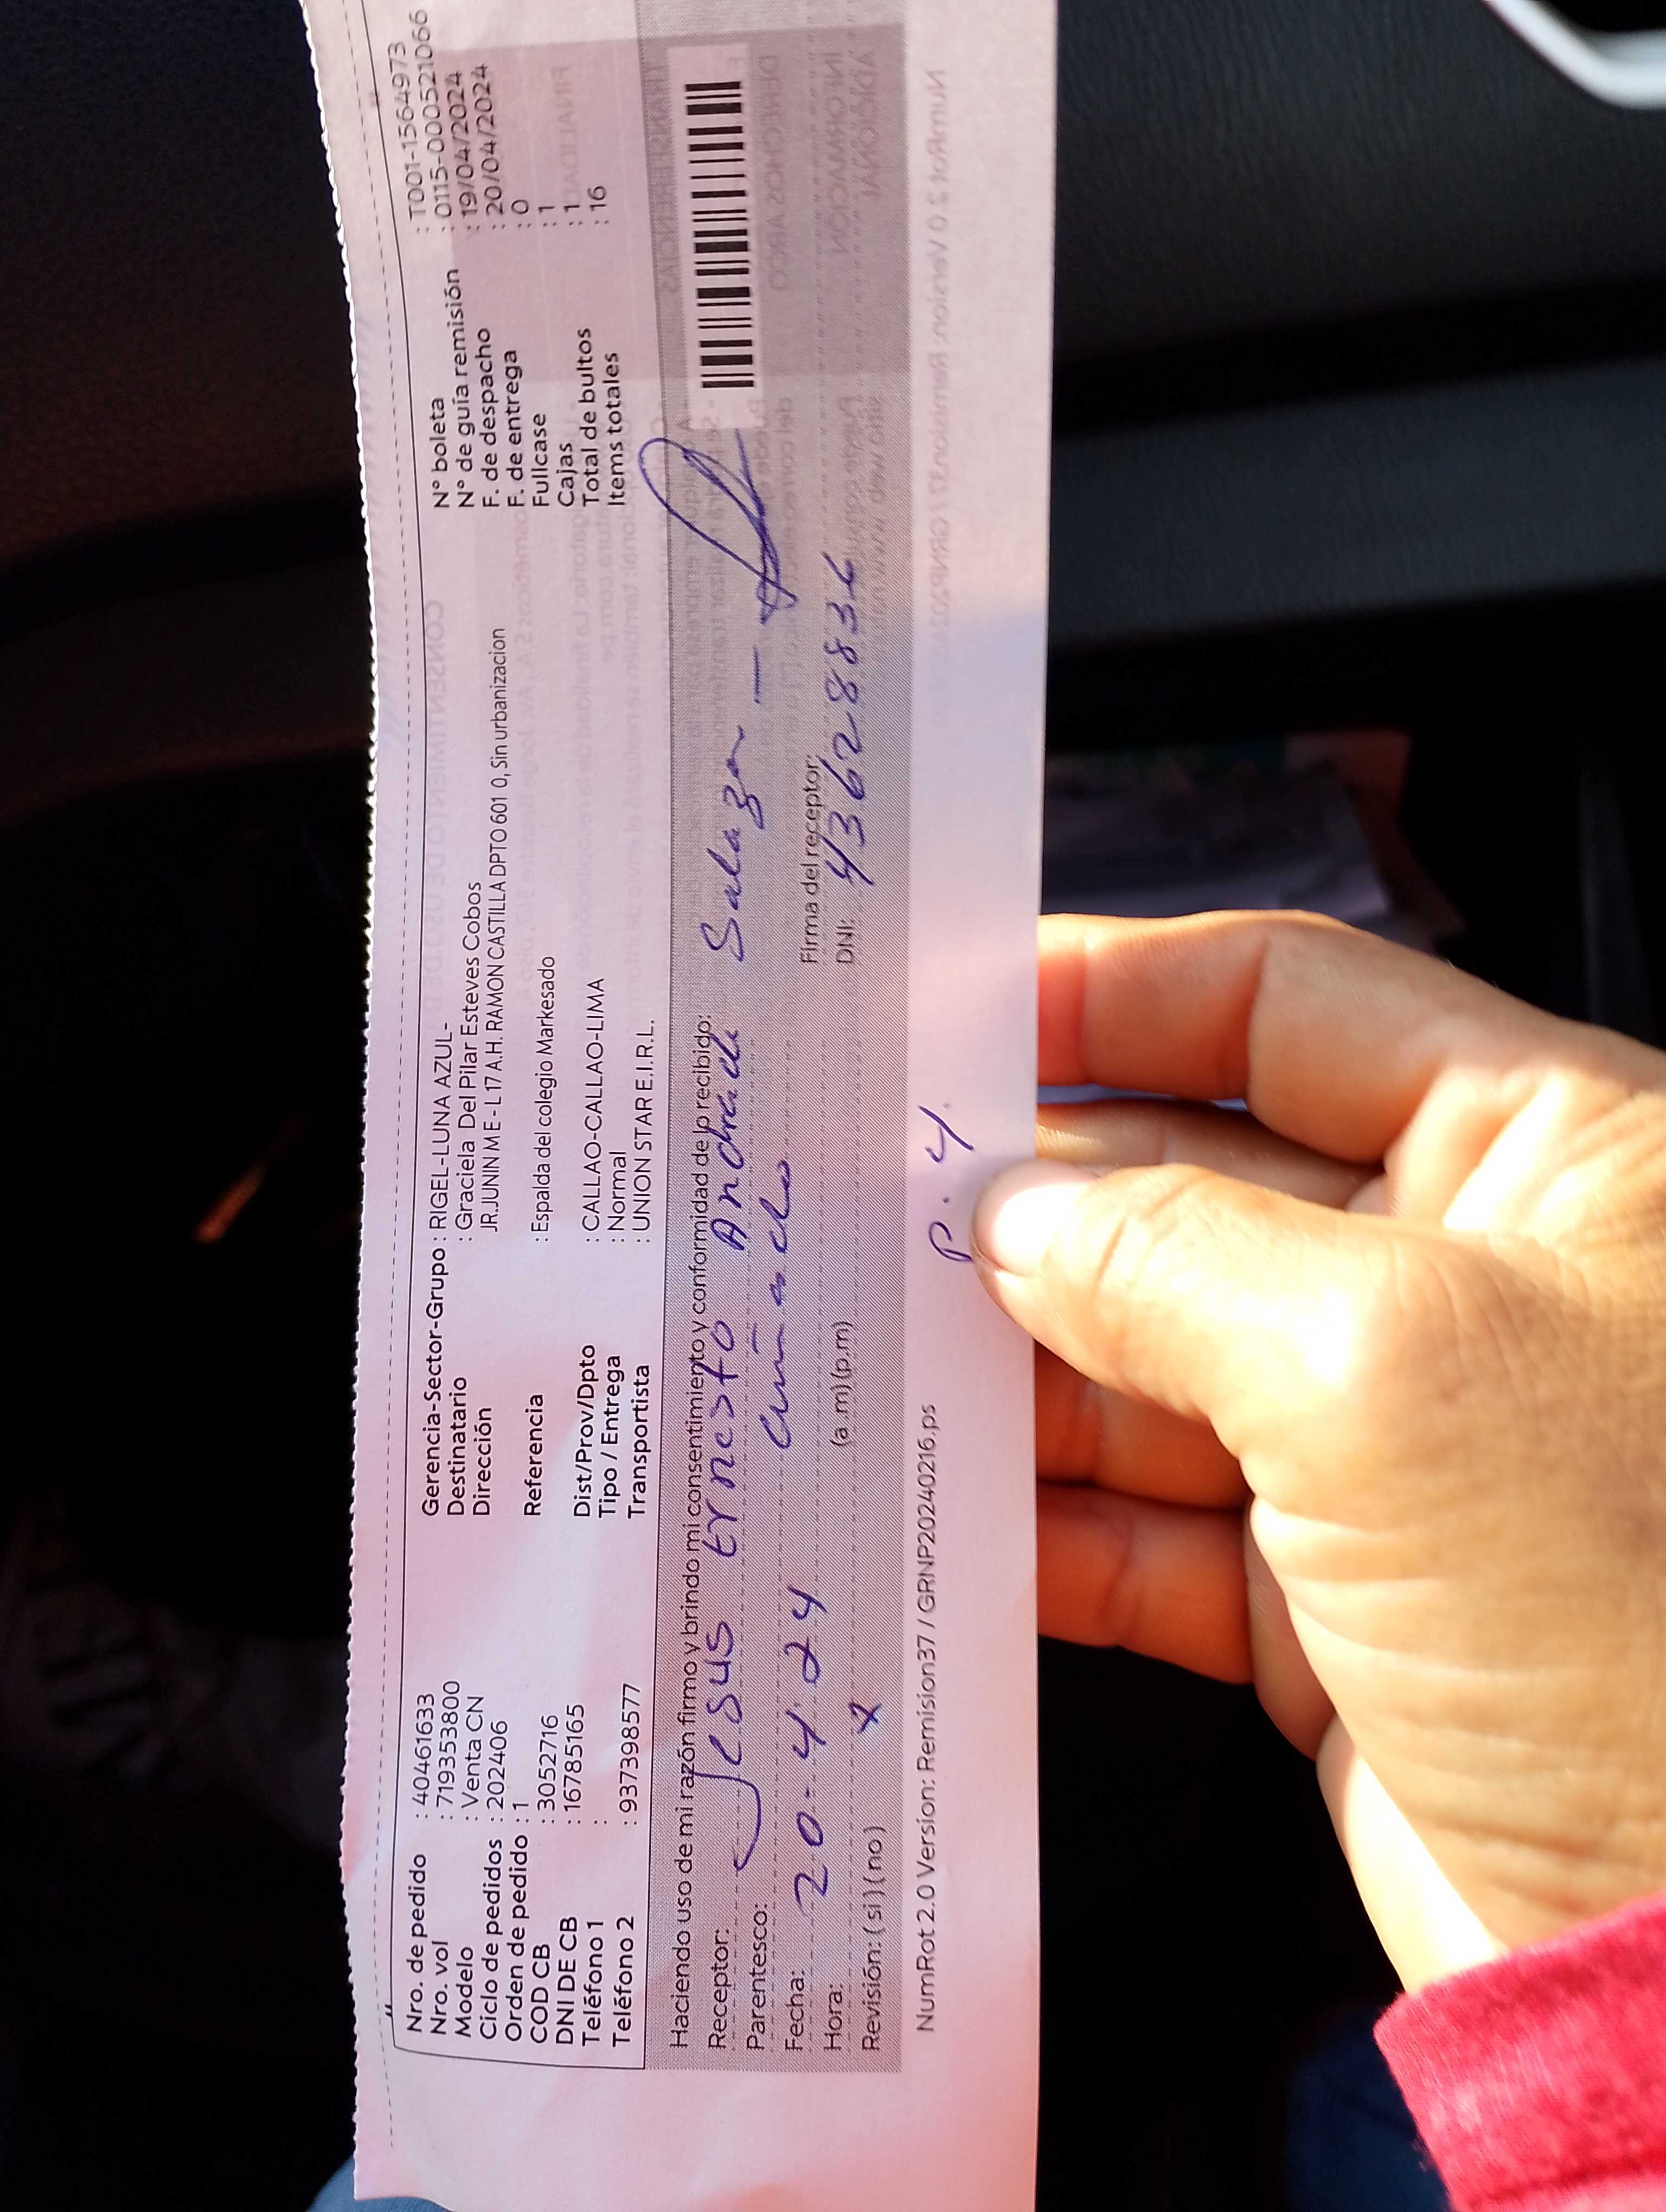 Nro. de pedido : 40461633
Nro. vol : 719353800
Modelo : Venta CN
Ciclo de pedidos : 202406
Orden de pedido : 1
COD CB : 3052716
DNI DE CB : 16785165
Teléfono 1 :
Teléfono 2 : 937398577
Gerencia-Sector-Grupo : RIGEL-LUNA AZUL-
Destinatario : Graciela Del Pilar Esteves Cobos
Dirección JR.JUNIN M E - L 17 A.H. RAMON CASTILLA DPTO 601 0, Sin urbanizacion
Referencia : Espalda del colegio Markesado
Dist/Prov/Dpto : CALLAO-CALLAO-LIMA
Tipo / Entrega : Normal
Transportista : UNION STAR E.I.R.L.
N° boleta : T001-1564973
N° de guía remisión : 0115-000521066
F. de despacho : 19/04/2024
F. de entrega : 20/04/2024
Fullcase : 0
Cajas : 1
Total de bultos : 1
Items totales : 16
Haciendo uso de mi razón firmo y brindo mi consentimiento y conformidad de lo recibido:
Receptor: Jesus Ernesto Andrade Salazar
Parentesco: Cuñado
Fecha: 20-4-24
Firma del receptor:
Hora: (a.m) (p.m)
DNI: 43628836
Revisión: ( si ) ( no ) x
P. Y.
NumRot 2.0 Version: Remision37 / GRNP20240216.ps